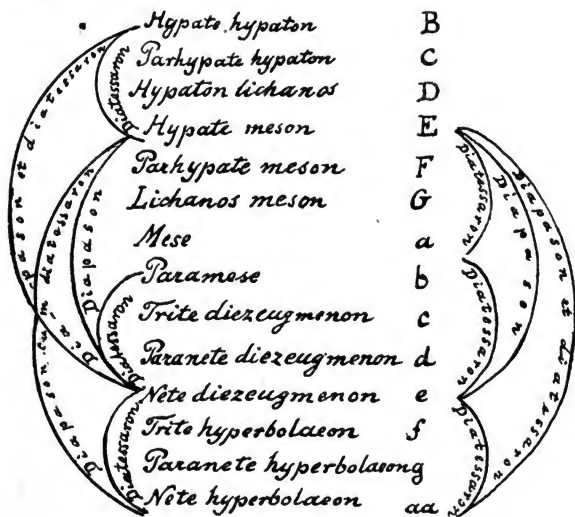 Hypate hypaton B
Parhypate hypaton C
Hypaton lichanos D
Hypate meson E
Parhypate meson F
Lichanos meson G
Mese a
Paramese b
Trite diezeugmenon c
Paranete diezeugmenon d
Nete diezeugmenon e
Trite hyperbolaeon f
Paranete hyperbolaeon g
Nete hyperbolaeon aa
Diapason et diatessaron
Diatessaron
Diapason cum diatessaron
Diapason
Diatessaron
Diatessaron
Diatessaron
Diapason
Diapason et diatessaron
Diatessaron
Diatessaron